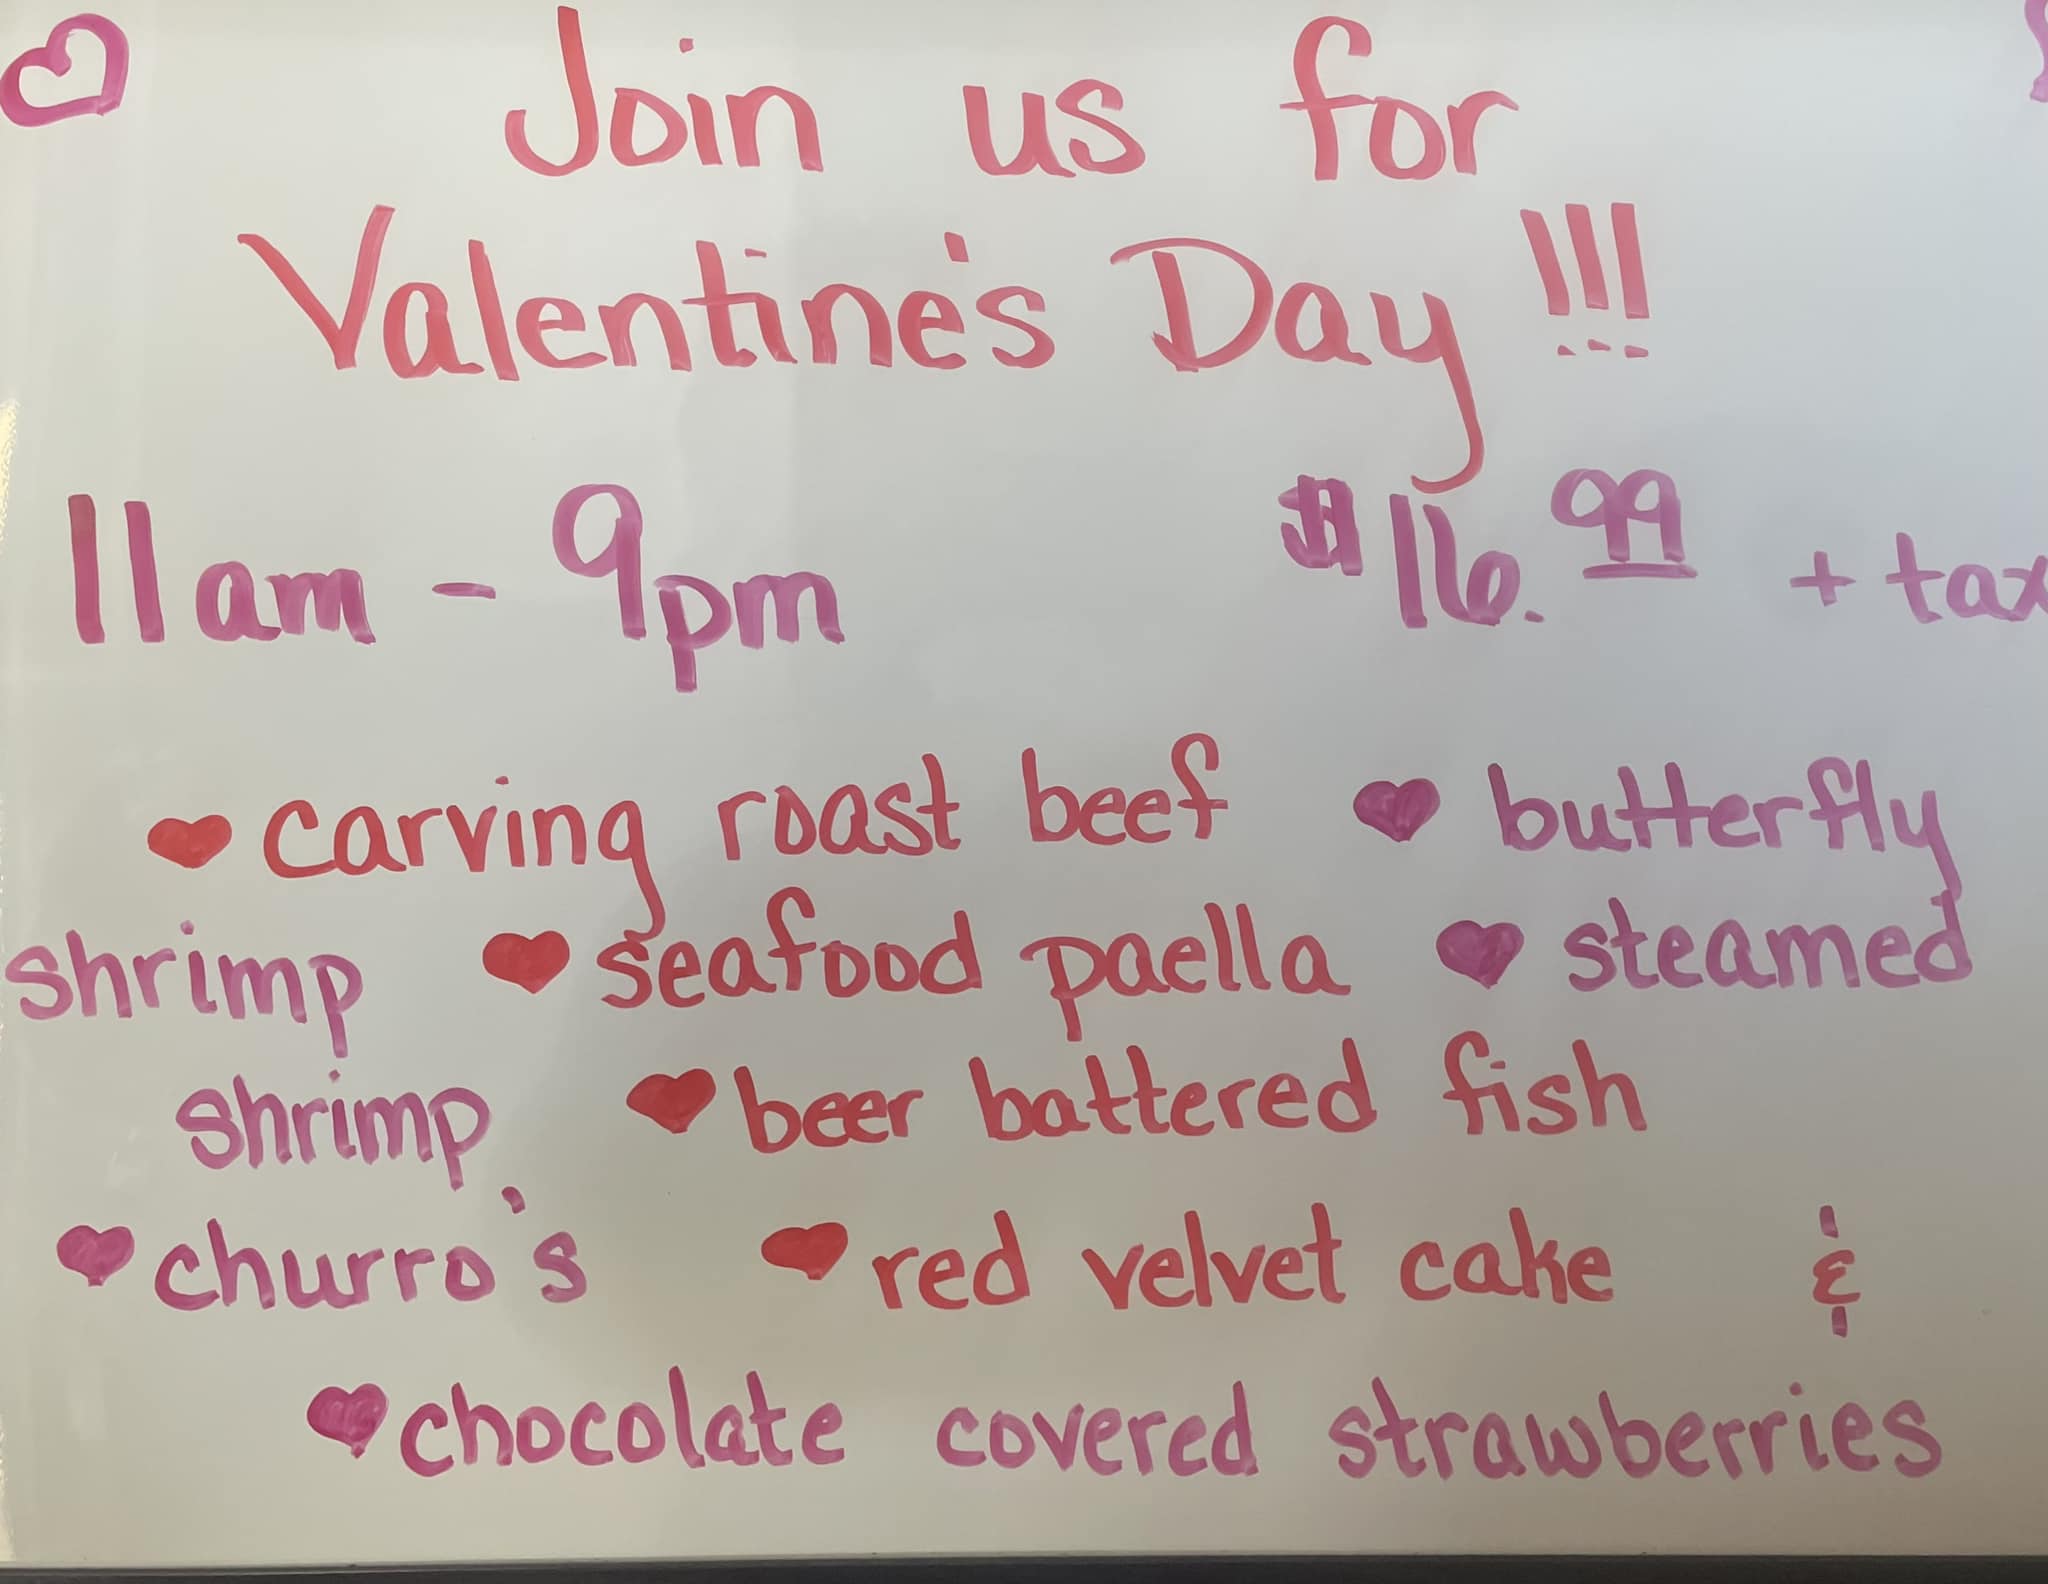 Join us for
Valentine's Day !!!
11am - 9pm $16.99 + tax
carving roast beef butterfly
shrimp seafood paella steamed
shrimp beer battered fish
churro's red velvet cake &
chocolate covered strawberries